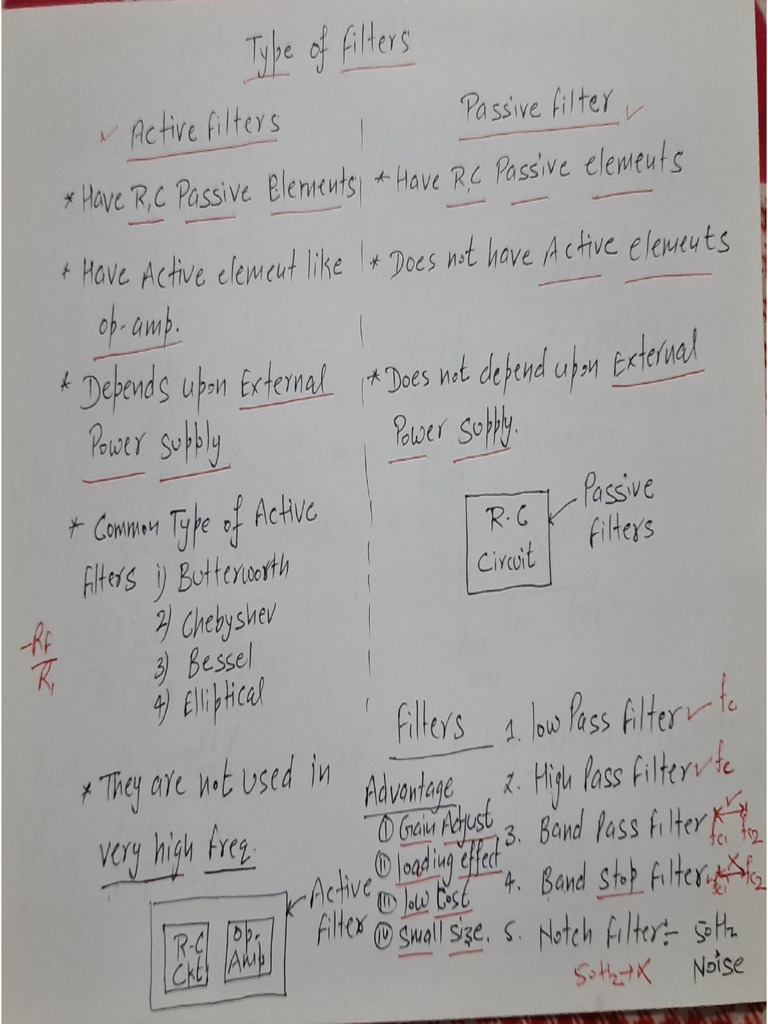 Type of filters
Active filters
* Have R,C Passive Elements
* Have Active element like
op-amp.
* Depends upon External
Power supply
* Common Type of Active
filters 1) Butterworth
2) Chebyshev
3) Bessel
4) Elliptical
-Rf
R1
* They are not used in
very high freq.
Active
filter
R-C
Ckt
Op-
Amp
Passive filter
* Have R,C Passive elements
* Does not have Active elements
* Does not depend upon External
Power supply.
R-C
Circuit
Passive
filters
filters
1. low Pass filter fc
2. High Pass filter fc
3. Band Pass filter fc1 fc2
4. Band Stop filter fc1 fc2
5. Notch filter:- 50Hz
Noise
50Hz→X
Advantage
(I) Gain Adjust
(II) loading effect
(III) low Cost
(IV) Small Size.